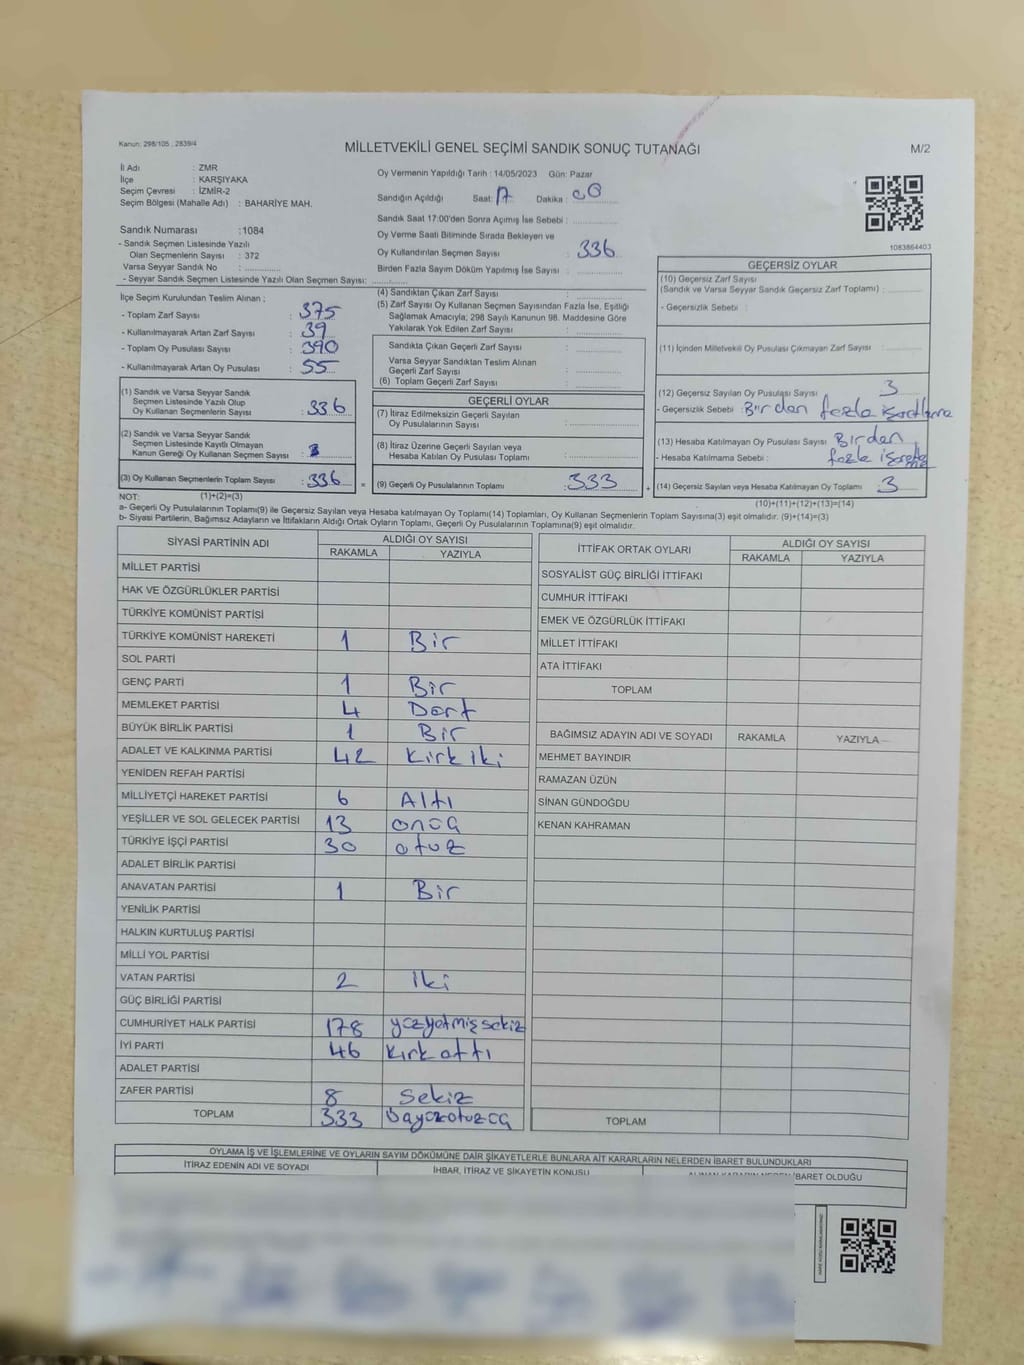 Kanun: 298/105 , 2839/4
MİLLETVEKİLİ GENEL SEÇİMİ SANDIK SONUÇ TUTANAĞI
M/2
İl Adı : ZMR
İlçe : KARŞIYAKA
Seçim Çevresi : İZMİR-2
Seçim Bölgesi (Mahalle Adı) : BAHARİYE MAH.
Sandık Numarası :1084
- Sandık Seçmen Listesinde Yazılı
Olan Seçmenlerin Sayısı : 372
Varsa Seyyar Sandık No :
- Seyyar Sandık Seçmen Listesinde Yazılı Olan Seçmen Sayısı:
Oy Vermenin Yapıldığı Tarih : 14/05/2023 Gün: Pazar
Sandığın Açıldığı Saat: 17 Dakika : 00
Sandık Saat 17:00'den Sonra Açımış İse Sebebi :
Oy Verme Saati Bitiminde Sırada Bekleyen ve
Oy Kullandırılan Seçmen Sayısı : 336
Birden Fazla Sayım Döküm Yapılmış İse Sayısı :
1083864403
İlçe Seçim Kurulundan Teslim Alınan ;
- Toplam Zarf Sayısı : 375
- Kullanılmayarak Artan Zarf Sayısı : 39
- Toplam Oy Pusulası Sayısı : 390
- Kullanılmayarak Artan Oy Pusulası : 55
(1) Sandık ve Varsa Seyyar Sandık
Seçmen Listesinde Yazılı Olup
Oy Kullanan Seçmenlerin Sayısı : 336
(2) Sandık ve Varsa Seyyar Sandık
Seçmen Listesinde Kayıtlı Olmayan
Kanun Gereği Oy Kullanan Seçmen Sayısı :
(3) Oy Kullanan Seçmenlerin Toplam Sayısı : 336 =
(4) Sandıktan Çıkan Zarf Sayısı :
(5) Zarf Sayısı Oy Kullanan Seçmen Sayısından Fazla İse, Eşitliği
Sağlamak Amacıyla; 298 Sayılı Kanunun 98. Maddesine Göre
Yakılarak Yok Edilen Zarf Sayısı :
Sandıkta Çıkan Geçerli Zarf Sayısı :
Varsa Seyyar Sandıktan Teslim Alınan
Geçerli Zarf Sayısı :
(6) Toplam Geçerli Zarf Sayısı :
GEÇERLİ OYLAR
(7) İtiraz Edilmeksizin Geçerli Sayılan
Oy Pusulalarının Sayısı :
(8) İtiraz Üzerine Geçerli Sayılan veya
Hesaba Katılan Oy Pusulası Toplamı :
(9) Geçerli Oy Pusulalarının Toplamı : 333 +
GEÇERSİZ OYLAR
(10) Geçersiz Zarf Sayısı
(Sandık ve Varsa Seyyar Sandık Geçersiz Zarf Toplamı) :
- Geçersizlik Sebebi :
(11) İçinden Milletvekili Oy Pusulası Çıkmayan Zarf Sayısı :
(12) Geçersiz Sayılan Oy Pusulası Sayısı : 3
- Geçersizlik Sebebi : Birden fazla işaretleme
(13) Hesaba Katılmayan Oy Pusulası Sayısı : Birden
- Hesaba Katılmama Sebebi : fazla
(14) Geçersiz Sayılan veya Hesaba Katılmayan Oy Toplamı : 3
NOT: (1)+(2)=(3)
(10)+(11)+(12)+(13)=(14)
a- Geçerli Oy Pusulalarının Toplamı(9) ile Geçersiz Sayılan veya Hesaba katılmayan Oy Toplamı(14) Toplamları, Oy Kullanan Seçmenlerin Toplam Sayısına(3) eşit olmalıdır. (9)+(14)=(3)
b- Siyasi Partilerin, Bağımsız Adayların ve İttifakların Aldığı Ortak Oyların Toplamı, Geçerli Oy Pusulalarının Toplamına(9) eşit olmalıdır.
SİYASİ PARTİNİN ADI
ALDIĞI OY SAYISI
RAKAMLA YAZIYLA
MİLLET PARTİSİ
HAK VE ÖZGÜRLÜKLER PARTİSİ
TÜRKİYE KOMÜNİST PARTİSİ
TÜRKİYE KOMÜNİST HAREKETİ 1 Bir
SOL PARTİ
GENÇ PARTİ 1 Bir
MEMLEKET PARTİSİ 4 Dört
BÜYÜK BİRLİK PARTİSİ 1 Bir
ADALET VE KALKINMA PARTİSİ 42 Kırk iki
YENİDEN REFAH PARTİSİ
MİLLİYETÇİ HAREKET PARTİSİ 6 Altı
YEŞİLLER VE SOL GELECEK PARTİSİ 13 onüç
TÜRKİYE İŞÇİ PARTİSİ 30 otuz
ADALET BİRLİK PARTİSİ
ANAVATAN PARTİSİ 1 Bir
YENİLİK PARTİSİ
HALKIN KURTULUŞ PARTİSİ
MİLLİ YOL PARTİSİ
VATAN PARTİSİ 2 iki
GÜÇ BİRLİĞİ PARTİSİ
CUMHURİYET HALK PARTİSİ 178 yüzyetmişsekiz
İYİ PARTİ 46 Kırk altı
ADALET PARTİSİ
ZAFER PARTİSİ 8 Sekiz
TOPLAM 333 üçyüzotuzüç
İTTİFAK ORTAK OYLARI
ALDIĞI OY SAYISI
RAKAMLA YAZIYLA
SOSYALİST GÜÇ BİRLİĞİ İTTİFAKI
CUMHUR İTTİFAKI
EMEK VE ÖZGÜRLÜK İTTİFAKI
MİLLET İTTİFAKI
ATA İTTİFAKI
TOPLAM
BAĞIMSIZ ADAYIN ADI VE SOYADI RAKAMLA YAZIYLA
MEHMET BAYINDIR
RAMAZAN ÜZÜN
SİNAN GÜNDOĞDU
KENAN KAHRAMAN
TOPLAM
OYLAMA İŞ VE İŞLEMLERİNE VE OYLARIN SAYIM DÖKÜMÜNE DAİR ŞİKAYETLERLE BUNLARA AİT KARARLARIN NELERDEN İBARET BULUNDUKLARI
İTİRAZ EDENİN ADI VE SOYADI
İHBAR, İTİRAZ VE ŞİKAYETİN KONUSU
ALINAN KARARIN NEDEN İBARET OLDUĞU